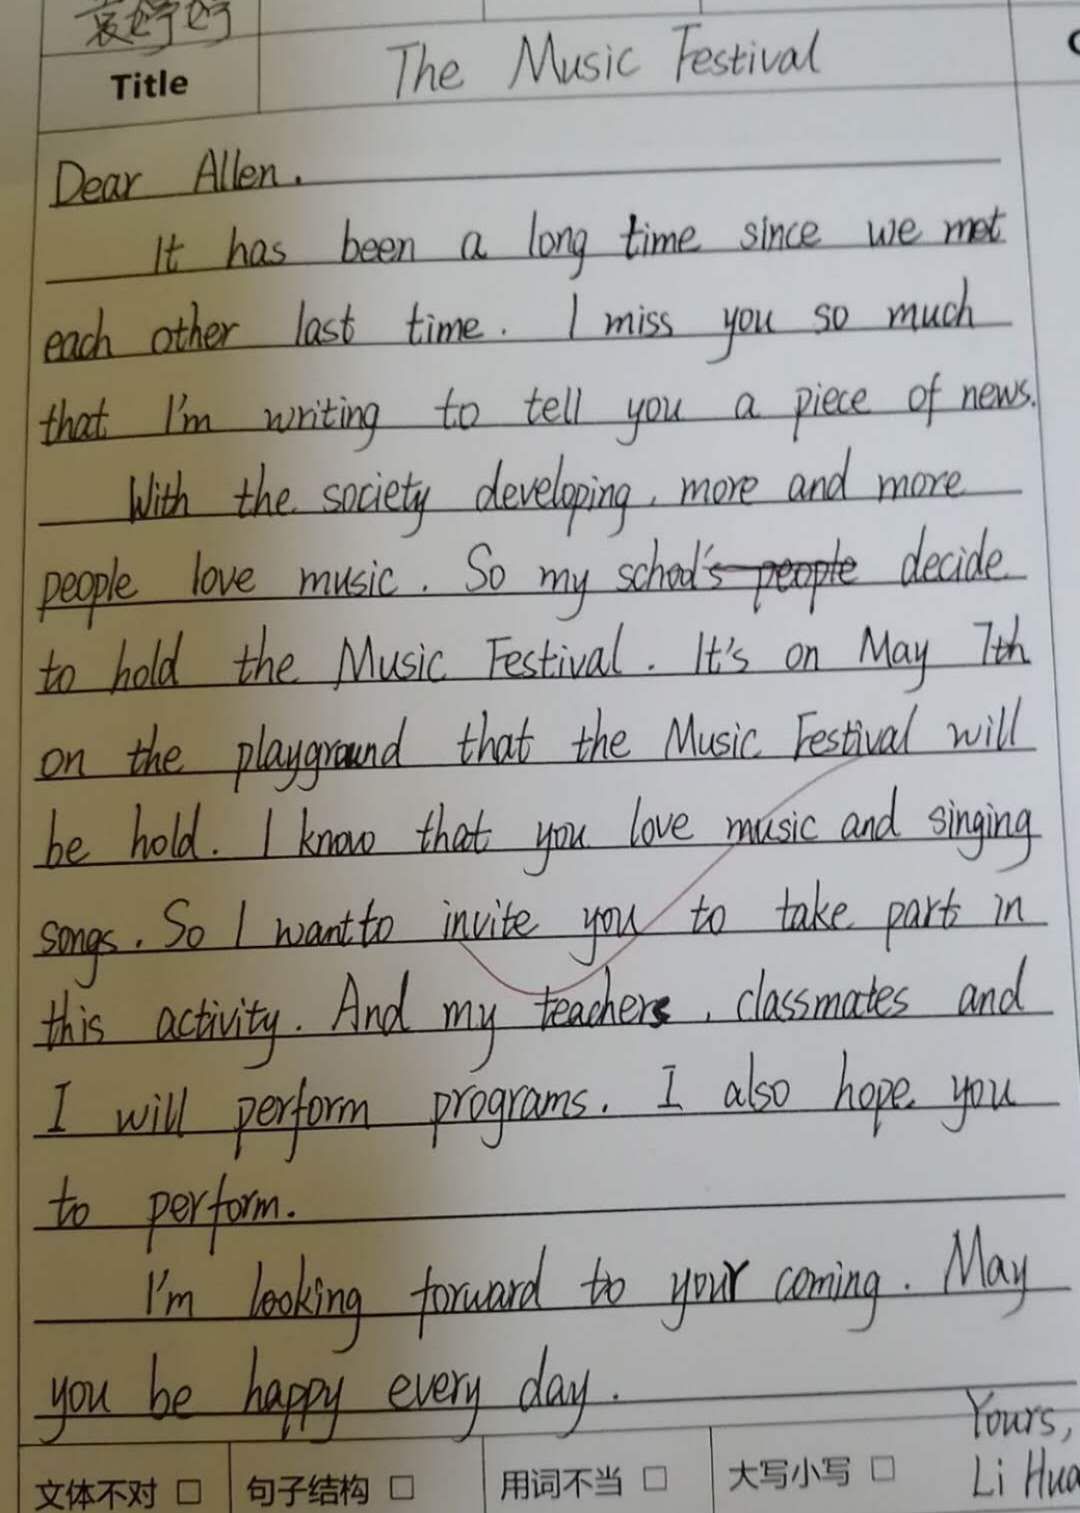 袁婷婷
Title The Music Festival
Dear Allen.
It has been a long time since we met
each other last time. I miss you so much
that I'm writing to tell you a piece of news.
With the society developing, more and more
people love music. So my school's people decide
to hold the Music Festival. It's on May 7th
on the playground that the Music Festival will
be hold. I know that you love music and singing
songs. So I want to invite you to take part in
this activity. And my teachers, classmates and
I will perform programs. I also hope you
to perform.
I'm looking forward to your coming. May
you be happy every day.
Yours,
Li Hua
文体不对 □ 句子结构 □ 用词不当 □ 大写小写 □